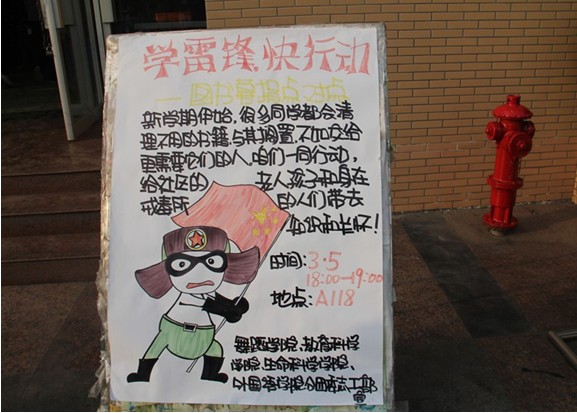 学雷锋,快行动
—图书募捐点对点
新学期伊始,很多同学都会清
理不用的书籍,与其搁置,不如交给
更需要它们的人,咱们一同行动,
给社区的老人孩子和身在
戒毒所的人们带去
知识和关怀!
时间:3.5
18:00—19:00
地点:A118
教育科学
学院,生命科学学院,
外国语学院